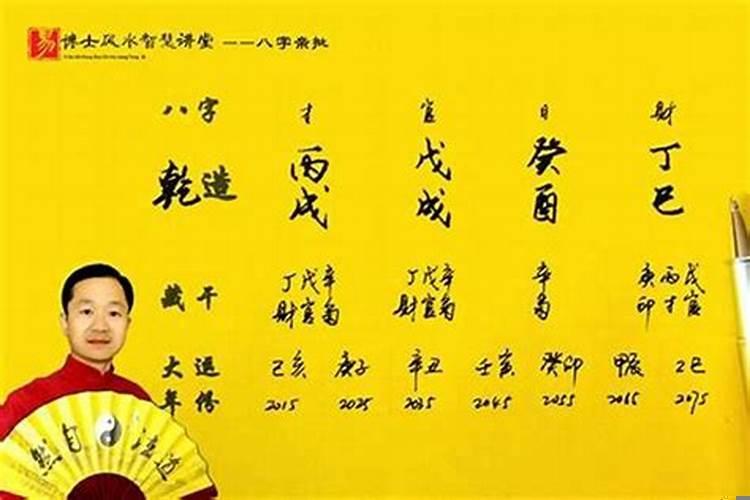 易 博士风水智慧讲堂 ——八字亲批
八字 才 官 日 财
乾造 丙戌 戊戌 癸酉 丁巳
藏干 丁戊辛 丁戊辛 辛 庚丙戊
财官枭 财官枭 枭 印才官
大运 己亥 庚子 辛丑 壬寅 癸卯 甲辰 乙巳
年份 2015 2025 2035 2045 2055 2065 2075
然自法道